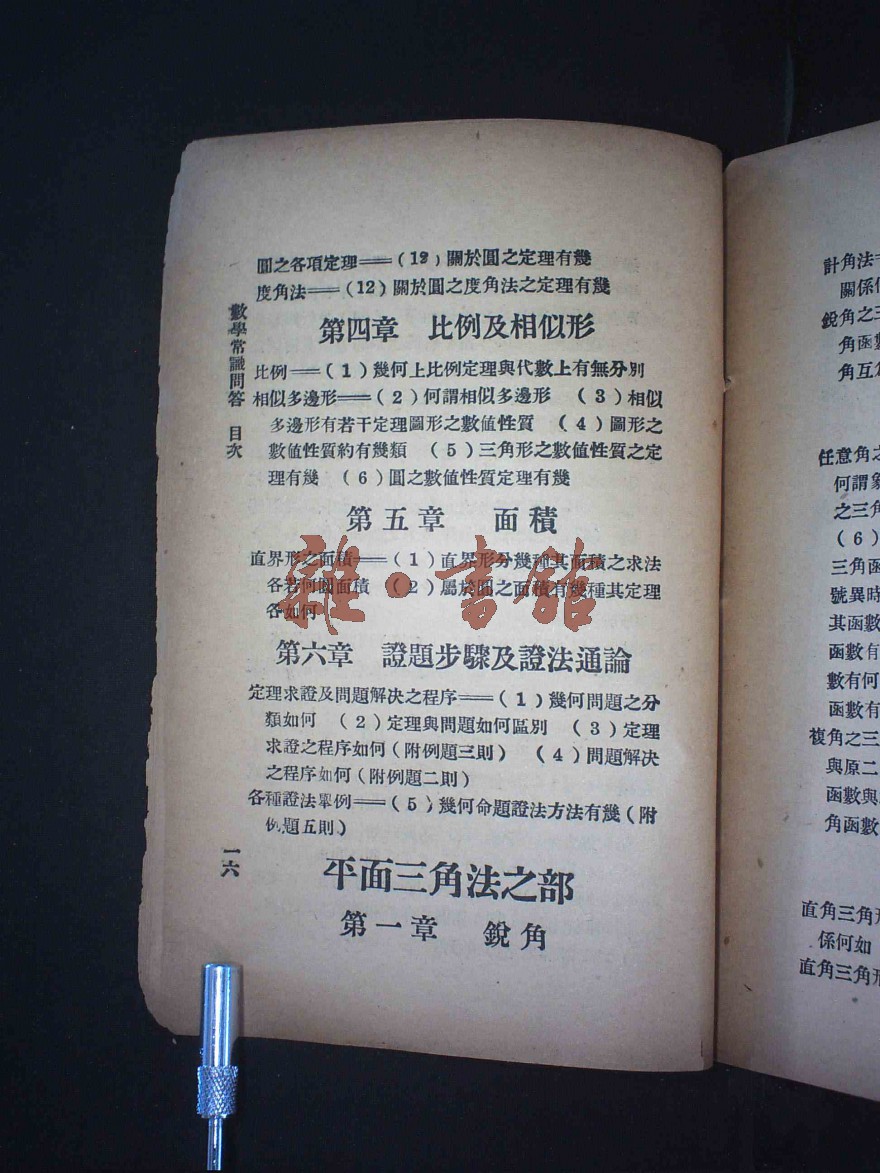 圓之各項定理——(12)關於圓之定理有幾
度角法——(12)關於圓之度角法之定理有幾
第四章 比例及相似形
比例——(1)幾何上比例定理與代數上有無分別
相似多邊形——(2)何謂相似多邊形 (3)相似
多邊形有若干定理圖形之數值性質 (4)圖形之
數值性質約有幾類 (5)三角形之數值性質之定
理有幾 (6)圓之數值性質定理有幾
第五章 面積
直界形之面積——(1)直界形分幾種其面積之求法
各若何圓面積 (2)屬於圓之面積有幾種其定理
各如何
第六章 證題步驟及證法通論
定理求證及問題解决之程序——(1)幾何問題之分
類如何 (2)定理與問題如何區別 (3)定理
求證之程序如何(附例題三則) (4)問題解决
之程序如何(附例題二則)
各種證法舉例——(5)幾何命題證法方法有幾(附
例題五則)
平面三角法之部
第一章 銳角
數學常識問答 目次
一六
雜·書館
計角法
關係
銳角之三
角函數
角互
任意角之
何謂
之三角
(6)
三角函
號異時
其函數
函數有
數有何
函數有
複角之三
與原二
函數與
角函數
直角三角形
係何如
直角三角形